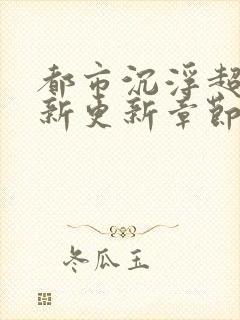 都市沉浮超
新更新章節
冬瓜玉